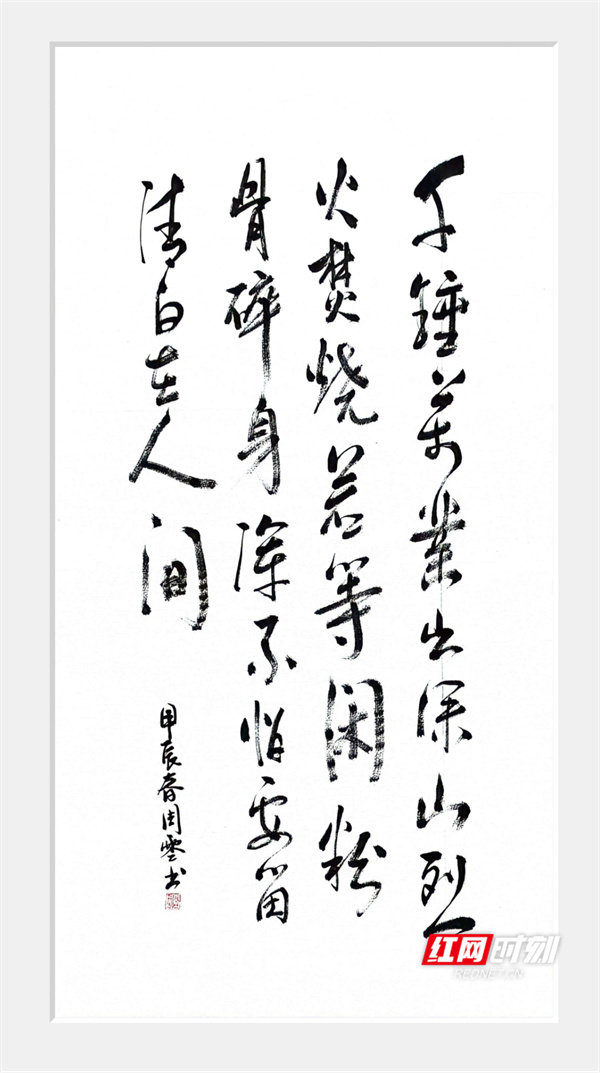 千锤万業出深山烈
火焚烧若等闲粉
骨碎身浑不怕要留
清白在人间
甲辰春周雲书
红网时刻
REDNET.CN